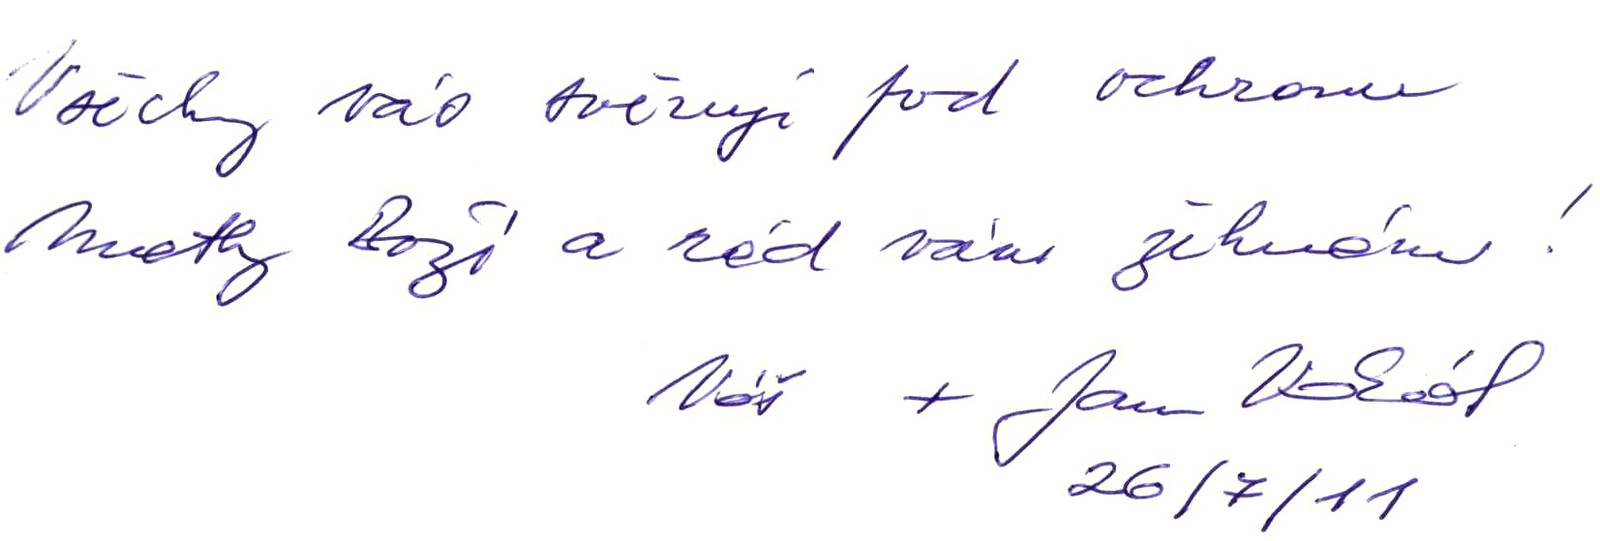 Všechny vás svěřuji pod ochranu
Matky Boží a rád vám žehnám!
Váš + Jan
26/7/11